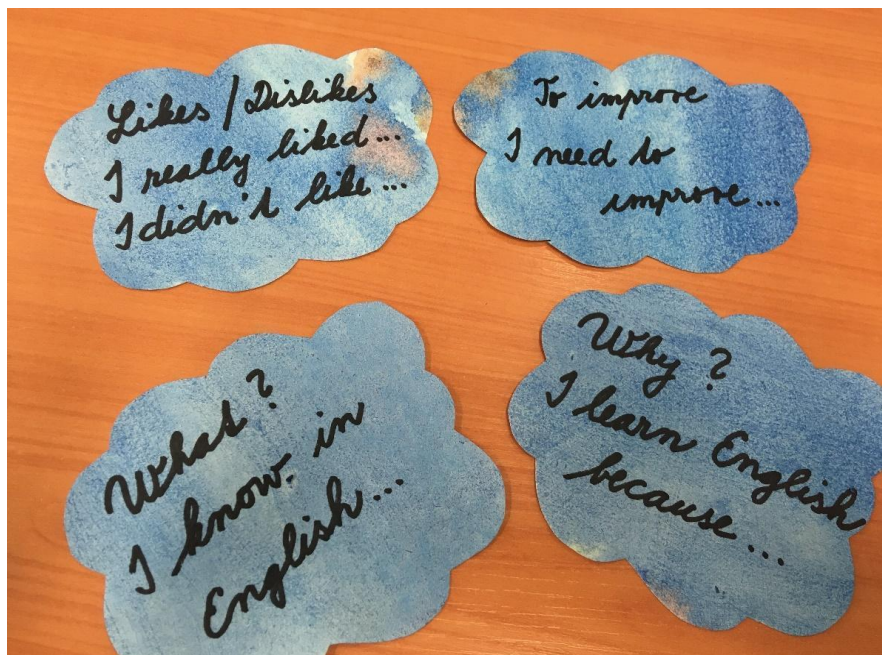 Likes / Dislikes
I really liked...
I didn't like...
To improve
I need to
improve...
What?
I know in
English...
Why?
I learn English
because...